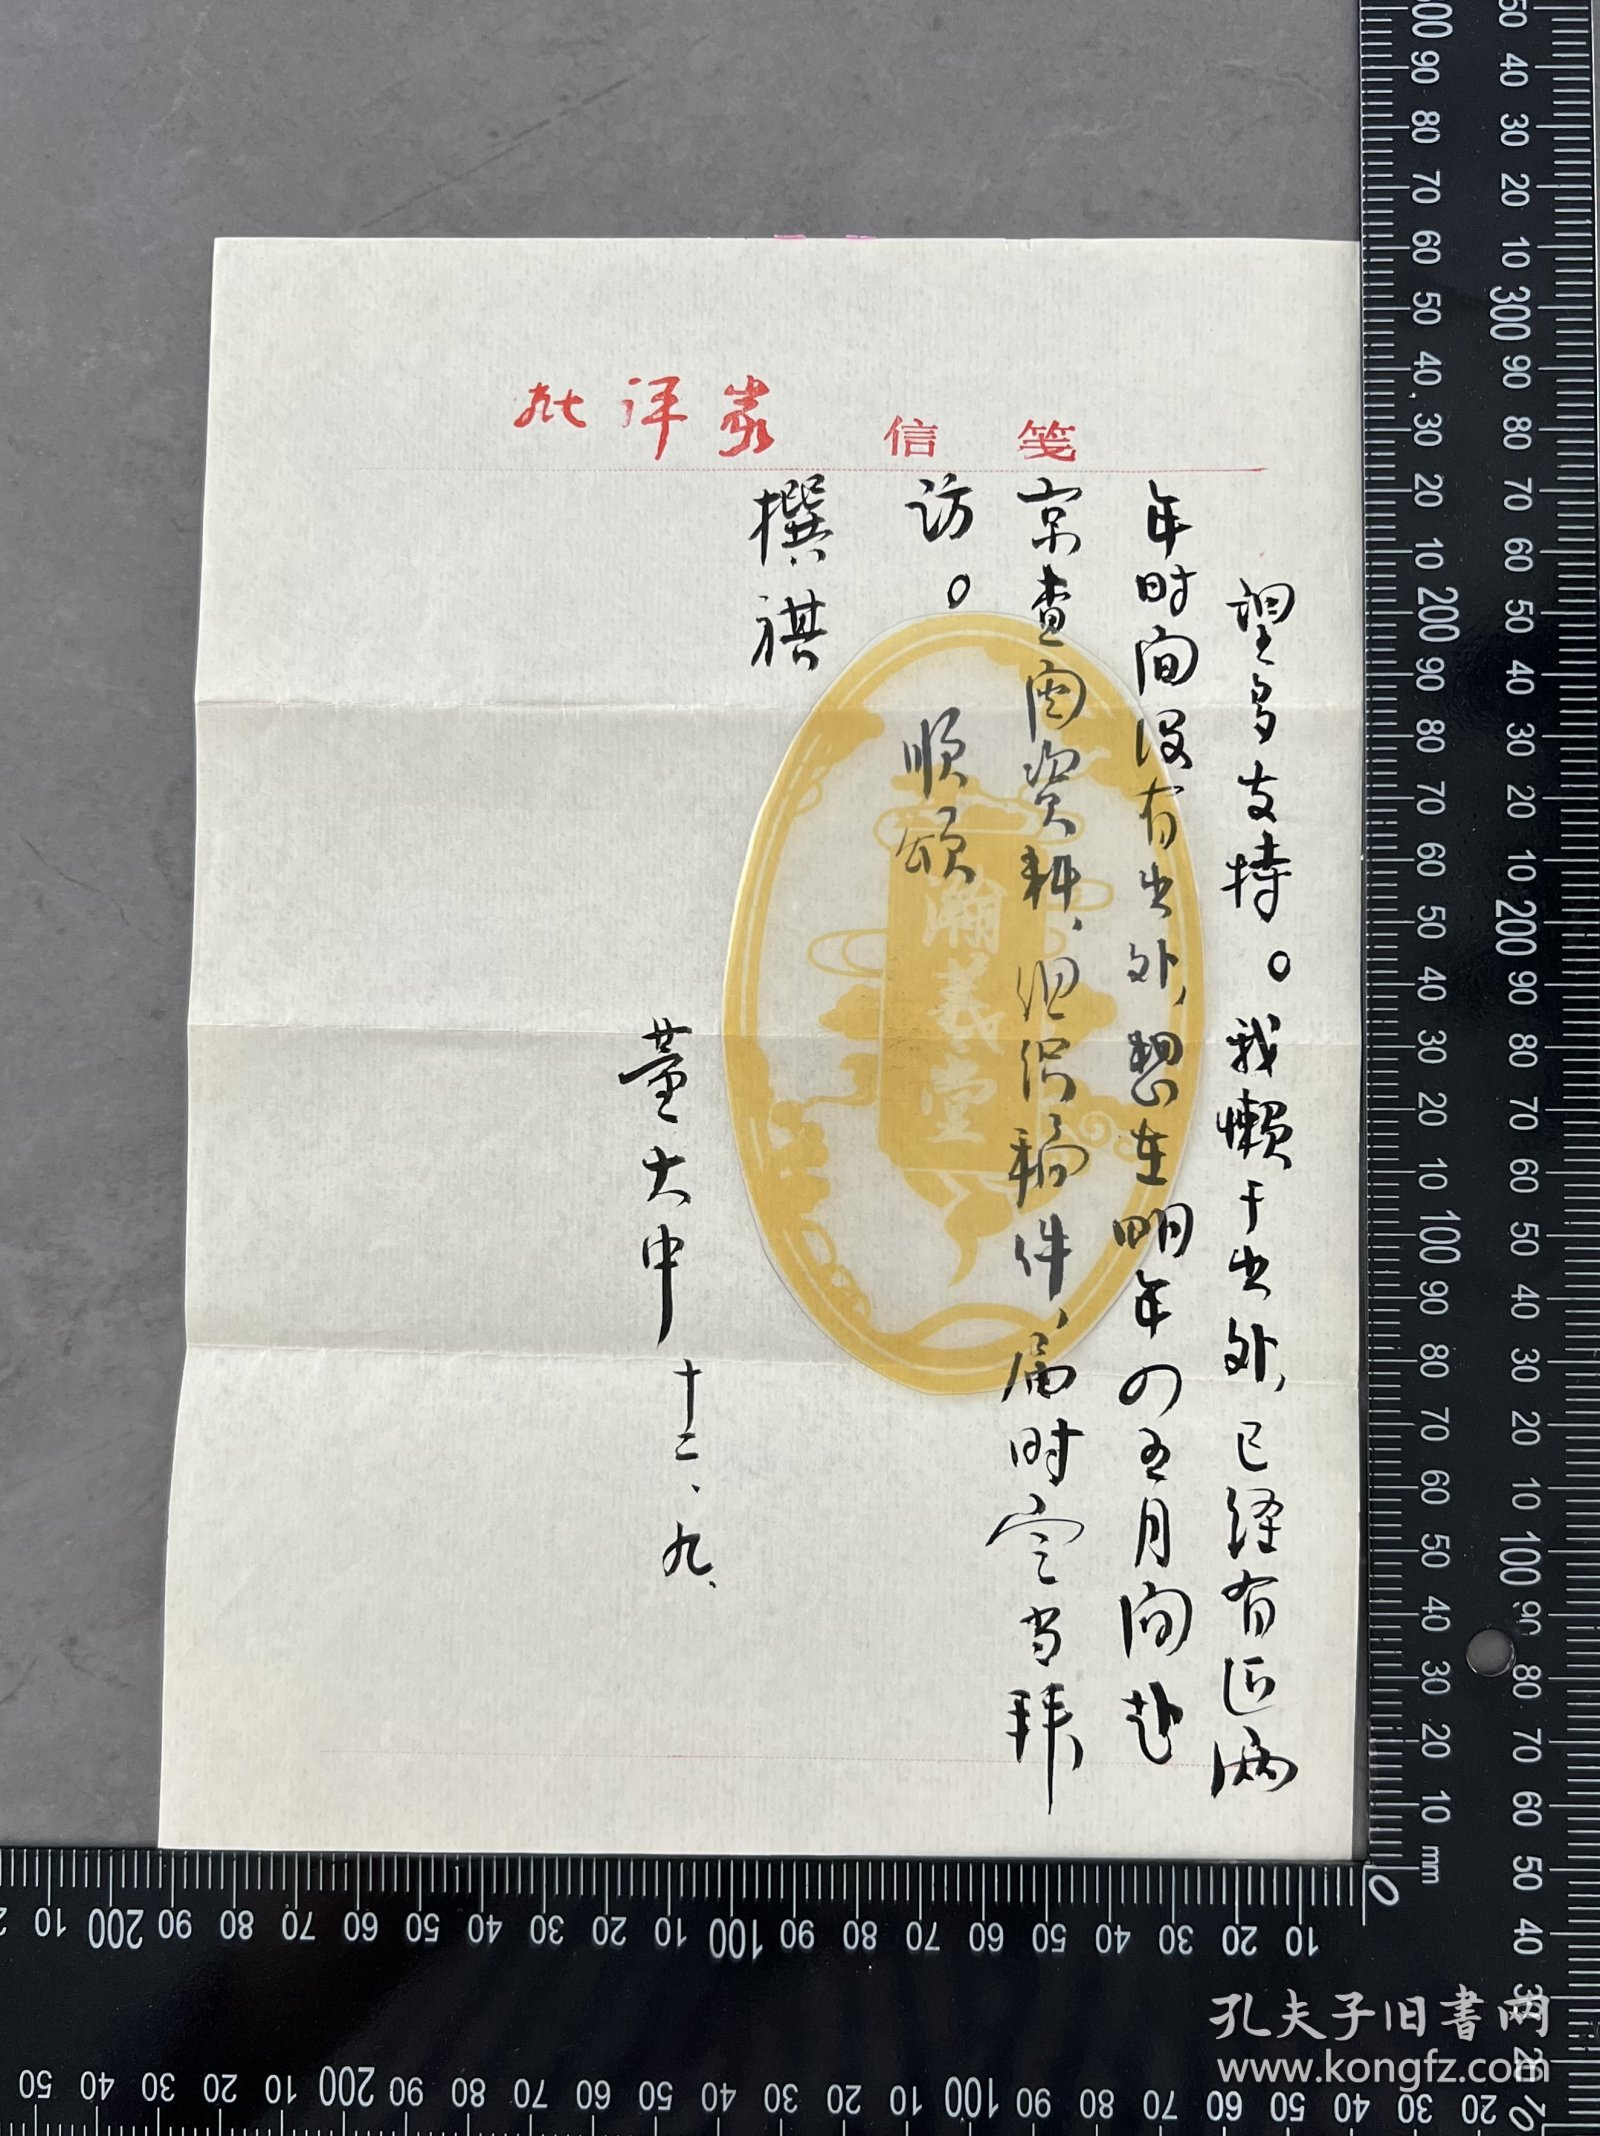 批评家 信笺
望多支持。我懒于出外,已经有近两
年时间没有出外,想在明年四五月间赴
京查阅资料,组织稿件,届时定当拜
访。 顺颂
撰祺
董大中
十二、九、
瀚羲堂
孔夫子旧书网
www.kongfz.com